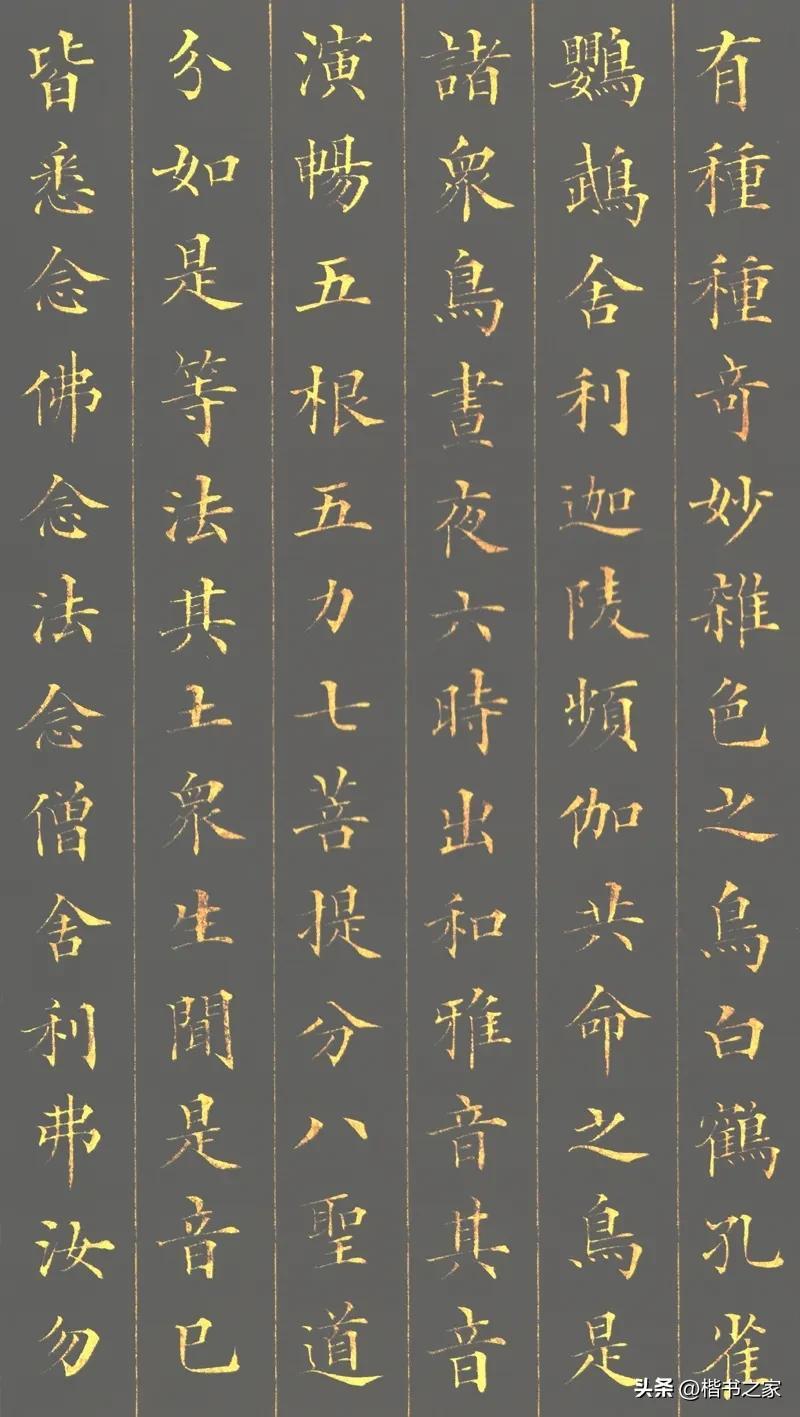 有種種奇妙雜色之鳥白鶴孔雀
鸚鵡舍利迦陵頻伽共命之鳥是
諸眾鳥晝夜六時出和雅音其音
演暢五根五力七菩提分八聖道
分如是等法其土眾生聞是音已
皆悉念佛念法念僧舍利弗汝勿
头条 @楷书之家